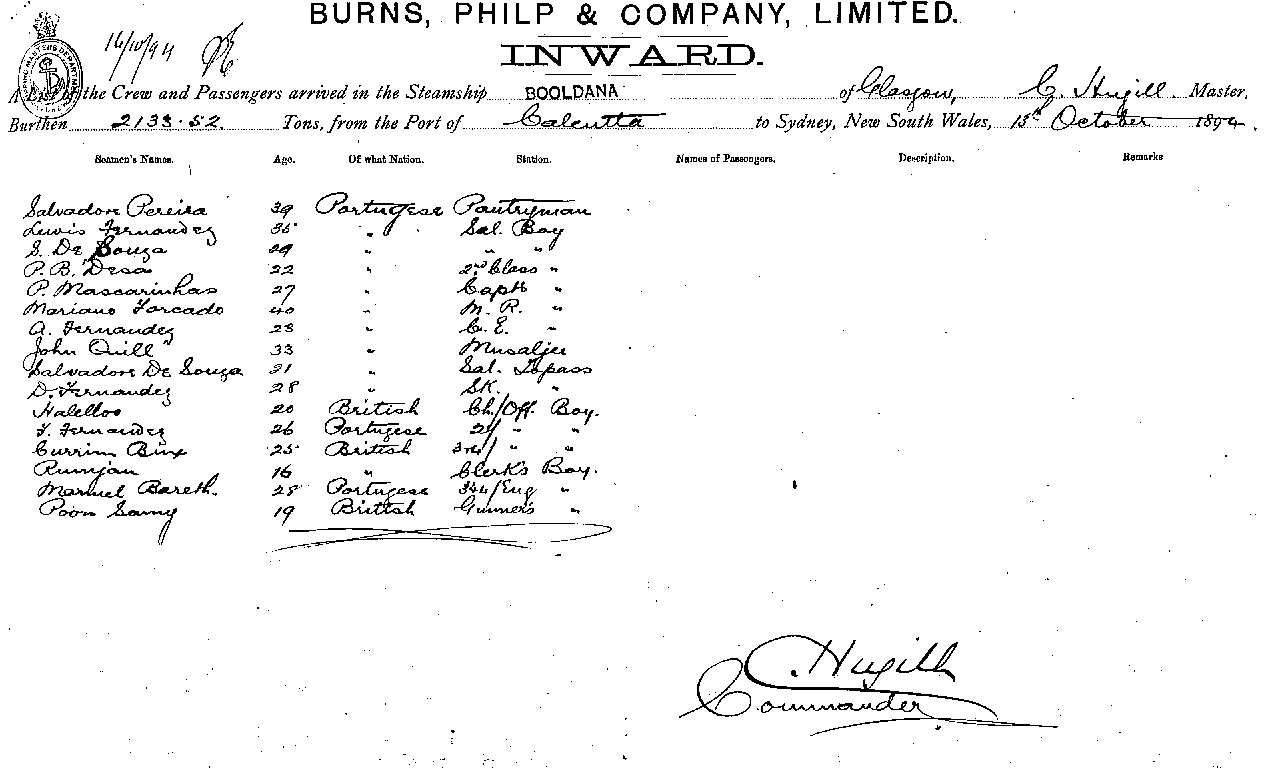 BURNS, PHILP & COMPANY, LIMITED.
16/10/94
INWARD.
A List of the Crew and Passengers arrived in the Steamship BOOLDANA of Glasgow, C. Hugill Master,
Burthen 2133.52. Tons, from the Port of Calcutta to Sydney, New South Wales, 15th October 1894.
Seamen's Names. Age. Of what Nation. Station. Names of Passengers. Description. Remarks
Salvadore Pereira 39 Portugese Pantryman
Lewis Fernandez 35 " Sal. Boy
S. De Souza 29 " " "
P. B. Desa 22 " 2nd Class "
P. Mascarinhas 27 " Capts "
Mariano Torcado 40 " M. R. "
A. Fernandez 23 " C. E. "
John Quill 33 " Musaljee
Salvadore De Souza 31 " Sal. Topass
D. Fernandez 28 " SK. "
Halelloo 20 British Ch/Off Boy.
F. Fernandez 26 Portugese 2/ " "
Currim Bux 25 British 3rd/ " "
Rumjan 16 " Clerk's Boy.
Manuel Bareth. 28 Portugese 3&4/Eng "
Poon Samy 19 British Gunner's "
C. Hugill
Commander